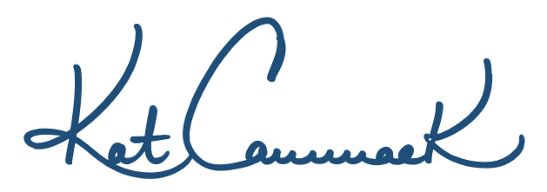 Kat Cammack